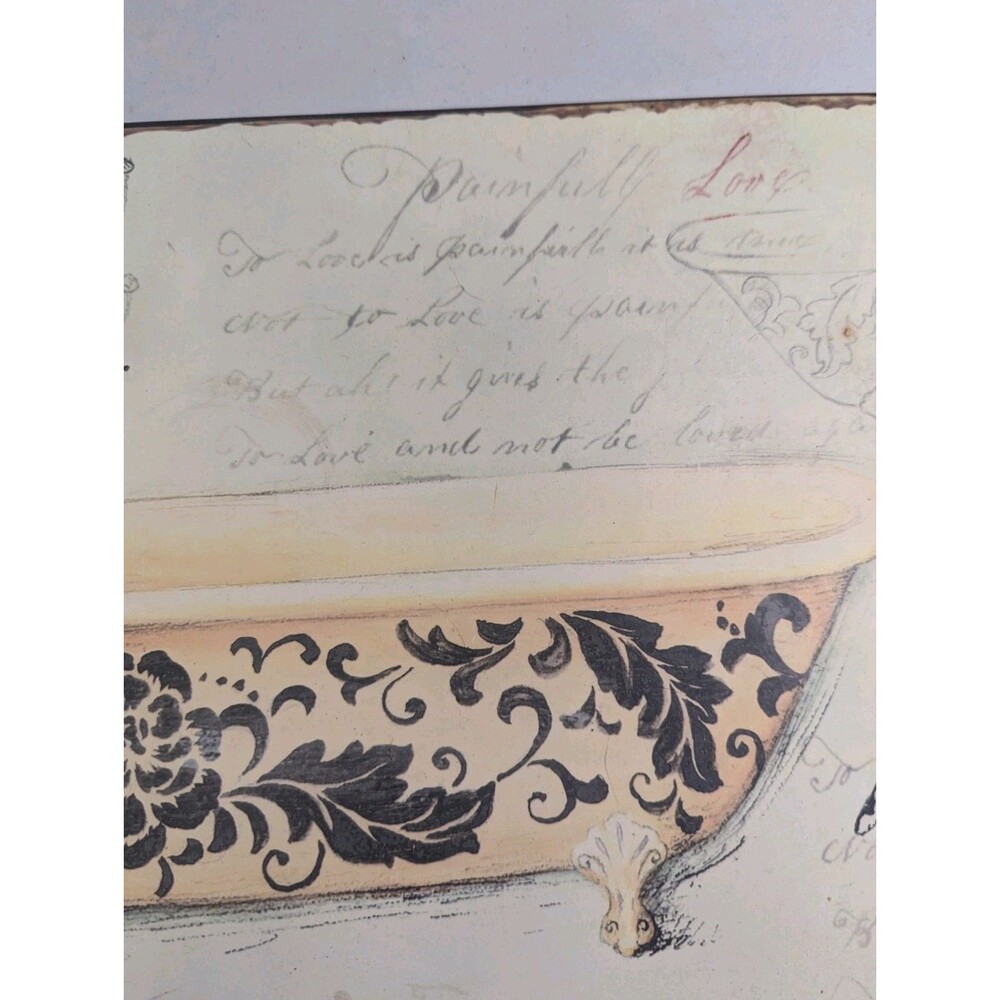 Painfull Love
To Love is painfull it is true
not to Love is painf
But ah! it gives the
To Love and not be loved aga
To